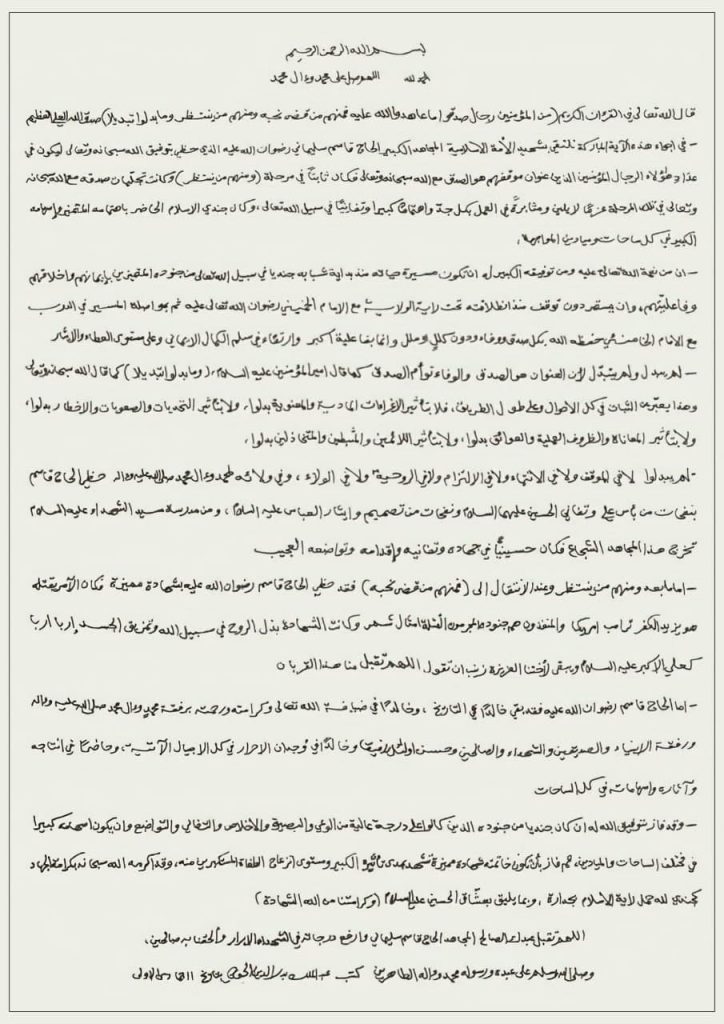 بسم الله الرحمن الرحيم
الحمد لله اللهم صل على محمد وءال محمد
قال الله تعالى في القرءان الكريم (من المؤمنين رجال صدقوا ما عاهدوا الله عليه فمنهم من قضى نحبه ومنهم من ينتظر وما بدلوا تبديلا) صدق الله العلي العظيم
- في اجواء هذه الآية المباركة نلتقي بشهيد الأمة الاسلامية المجاهد الكبير الحاج قاسم سليماني رضوان الله عليه الذي حظي بتوفيق الله سبحانه وتعالى ليكون في
عداد هؤلاء الرجال المؤمنين الذين عنوان موقفهم هو الصدق مع الله سبحانه وتعالى فكان ثابتاً في مرحلة (ومنهم من ينتظر) وكانت تجليات صدقه مع الله سبحانه
وتعالى في تلك المرحلة عزماً لا يلين ومثابرةً في العمل بكل جد واهتماماً كبيرا وتفانياً في سبيل الله تعالى، وكان جندي الاسلام الحاضر باهتمامه المتميز وإسهامه
الكبير في كل ساحات وميادين المواجهة.
- ان من نعمة الله تعالى عليه ومن توفيقه الكبير له ان تكون مسيرة حياته منذ بداية شبابه جنديا في سبيل الله تعالى من جنوده المتميزين بإيمانهم واخلاقهم
وفاعليتهم، وان يستمر دون توقف منذ انطلاقته تحت راية الولاية مع الامام الخميني رضوان الله تعالى عليه ثم بمواصلة المسير في الدرب
مع الامام الخامنئي حفظه الله بكل صدق ووفاء ودون كلل او ملل وانما بفاعلية أكبر وارتقاء في سلم الكمال الايماني وعلى مستوى العطاء والايثار
- لم يبدل ولم يتبدل لأن العنوان هو الصدق والوفاء توأم الصدق كما قال امير المؤمنين عليه السلام، (وما بدلوا تبديلا) كما قال الله سبحانه وتعالى
وهذا يعبر عن الثبات في كل الاحوال وعلى طول الطريق، فلا بتأثير الإغراءات المادية والمعنوية بدلوا، ولا بتأثير التحديات والصعوبات والاخطار بدلوا،
ولا بتأثير المعاناة والظروف العملية والعوائق بدلوا، ولا بتأثير اللائمين والمثبطين والمتخاذلين بدلوا،
- لم يبدلوا لا في الموقف ولا في الانتماء ولا في الإلتزام ولا في الروحية ولا في الولاء، وفي ولائه لمحمد وءال محمد صلى الله عليه وءاله حظي الحاج قاسم
بنفحات من بأس علي وتفاني الحسين عليهما السلام ونفحات من تصميم وإيثار العباس عليه السلام، ومن مدرسة سيد الشهداء عليه السلام
تخرج هذا المجاهد الشجاع فكان حسينياً في جهاده وتفانيه وإقدامه وتواضعه العجيب
- اما ما بعد ومنهم من ينتظر وعند الانتقال الى (فمنهم من قضى نحبه) فقد حظي الحاج قاسم رضوان الله عليه بشهادة مميزة فكان الآمر بقتله
هو يزيد الكفر ترامب امريكا والمنفذون هم جنوده المجرمون القتلة امثال شمر وكانت الشهادة بذل الروح في سبيل الله وتمزيق الجسد إربا اربا
كعلي الاكبر عليه السلام ويبقى لأختنا العزيزة زينب ان تقول اللهم تقبل منا هذا القربان
- اما الحاج قاسم رضوان الله عليه فقد بقي خالداً في التاريخ، وخالداً في ضيافة الله تعالى وكرامته ورحمته برفقة محمد وءال محمد صلى الله عليه وءاله
ورفقة الانبياء والصديقين والشهداء والصالحين وحسن اولئك رفيقا وخالداً في وجدان الاحرار في كل الاجيال الآتية، وحاضراً في انتاجه
وآثاره وإسهاماته في كل الساحات
- وقد فاز بتوفيق الله له ان كان جنديا من جنوده الذين كانوا على درجة عالية من الوعي والبصيرة والاخلاص والتفاني والتواضع وان يكون اسهامه كبيرا
في مختلف الساحات والميادين ثم فاز بأن تكون خاتمته شهادة مميزة تشهد بمدى تأثيره الكبير ومستوى انزعاج الطغاة المستكبرين منه، وقد اكرمه الله سبحانه بكرامة الجهاد
كجندي لله حمل راية الاسلام بجدارة، وبما يليق بعشاق الحسين عليه السلام (وكرامتنا من الله الشهادة)
اللهم تقبل عبدك الصالح المجاهد الحاج قاسم سليماني وارفع درجاته في الشهداء الابرار وألحقنا به صالحين،
وصلى الله وسلم على عبده ورسوله محمد وءاله الطاهرين كتب عبدالملك بدرالدين الحوثي بتاريخ ١١ جمادى الاولى